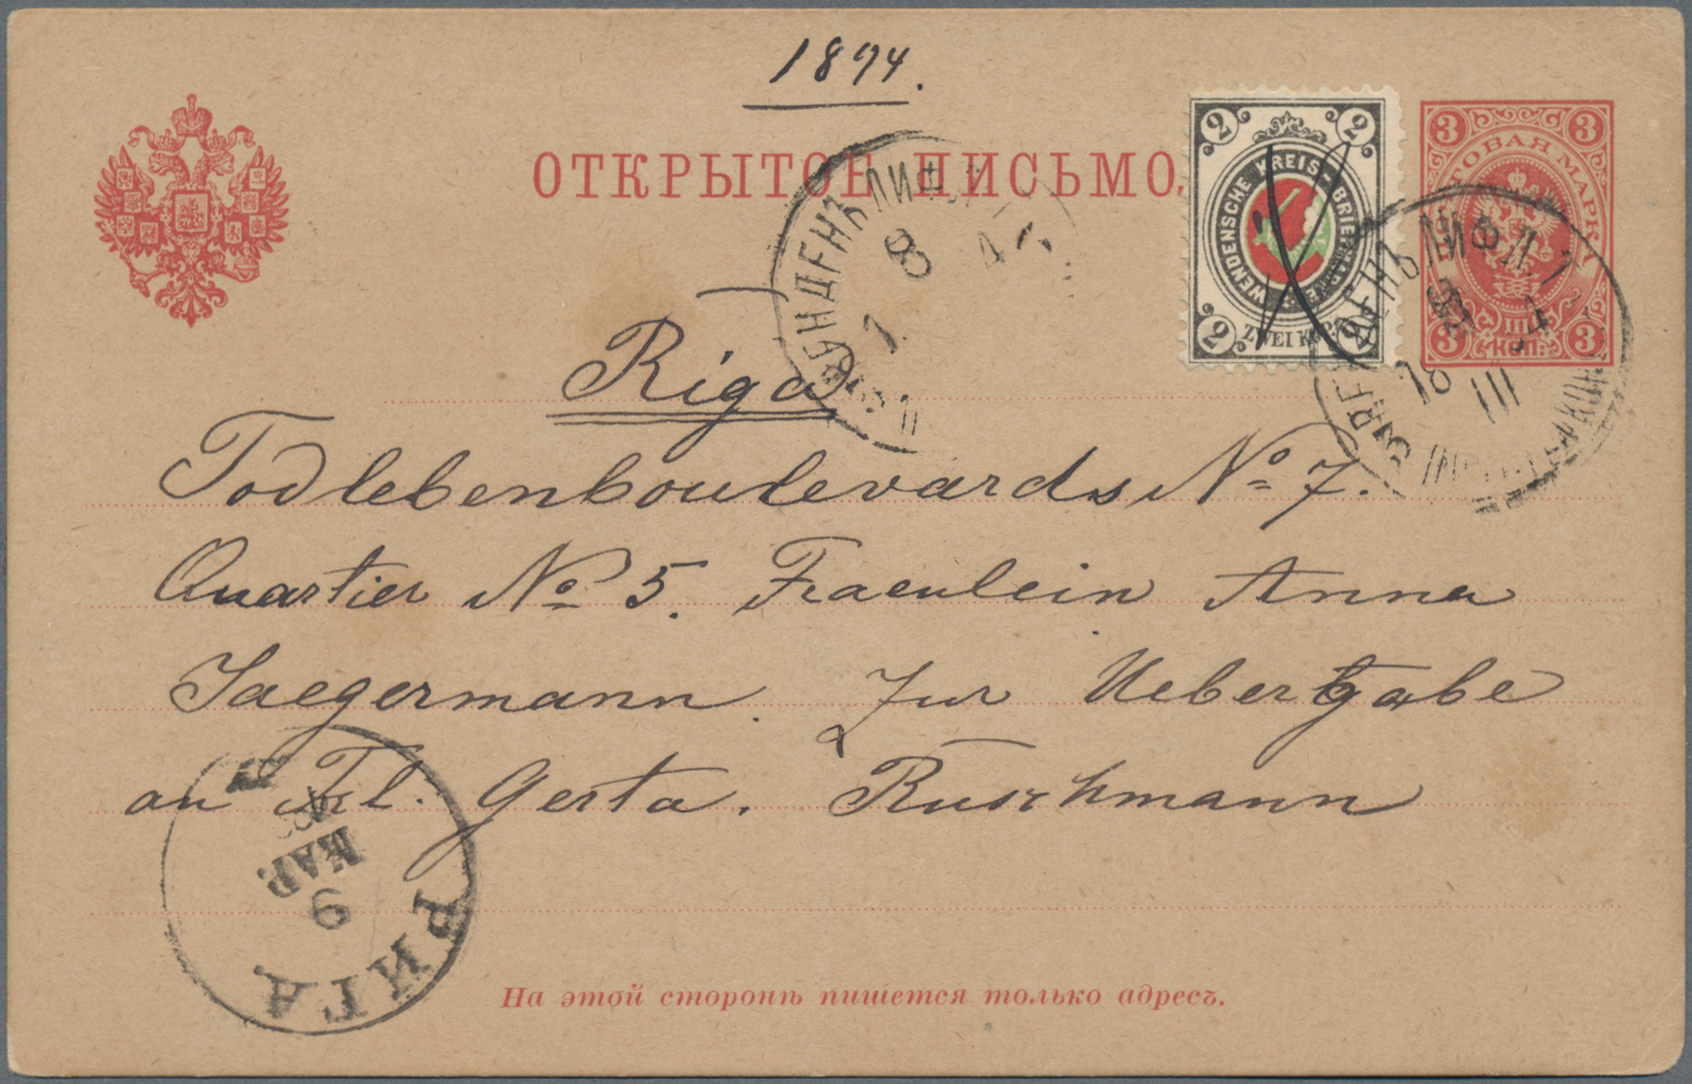 1894.
ОТКРЫТОЕ ПИСЬМО.
2 2
WENDENSCHE KREIS-BRIEFMARKE
2 2
ZWEI KOP.
3 3
ПОЧТОВАЯ МАРКА
3 3
КОП.
ВЕНДЕНЪ ЛИФЛ.
8
ВЕНДЕНЪ ЛИФЛ.
III
Riga
Todlebenboulevards No 7.
Quartier No 5. Fraeulein Anna
Jaegermann. Zur Uebergabe
an Frl. Gerta. Ruschmann
МАР.
9
РИГА
На этой сторонѣ пишется только адресъ.